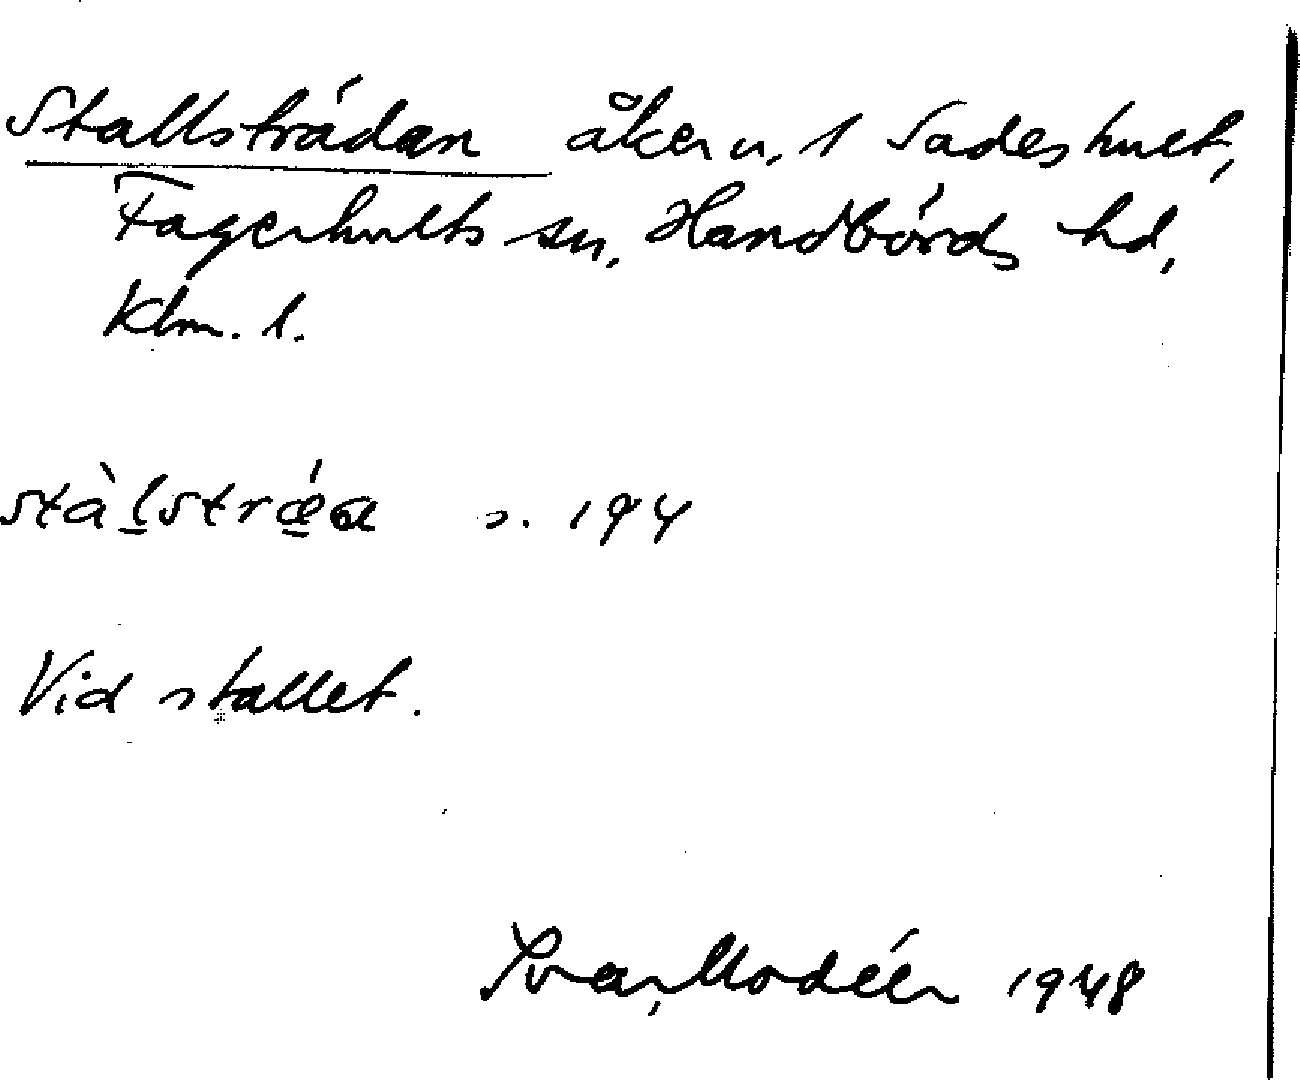 Stallsträdan åkern. i Sadeshult,
Fagerhults sn, Handbörds hd,
Klm. l.
stàlstrǽa s. 194
Vid stallet.
Ivar Modéer 1948